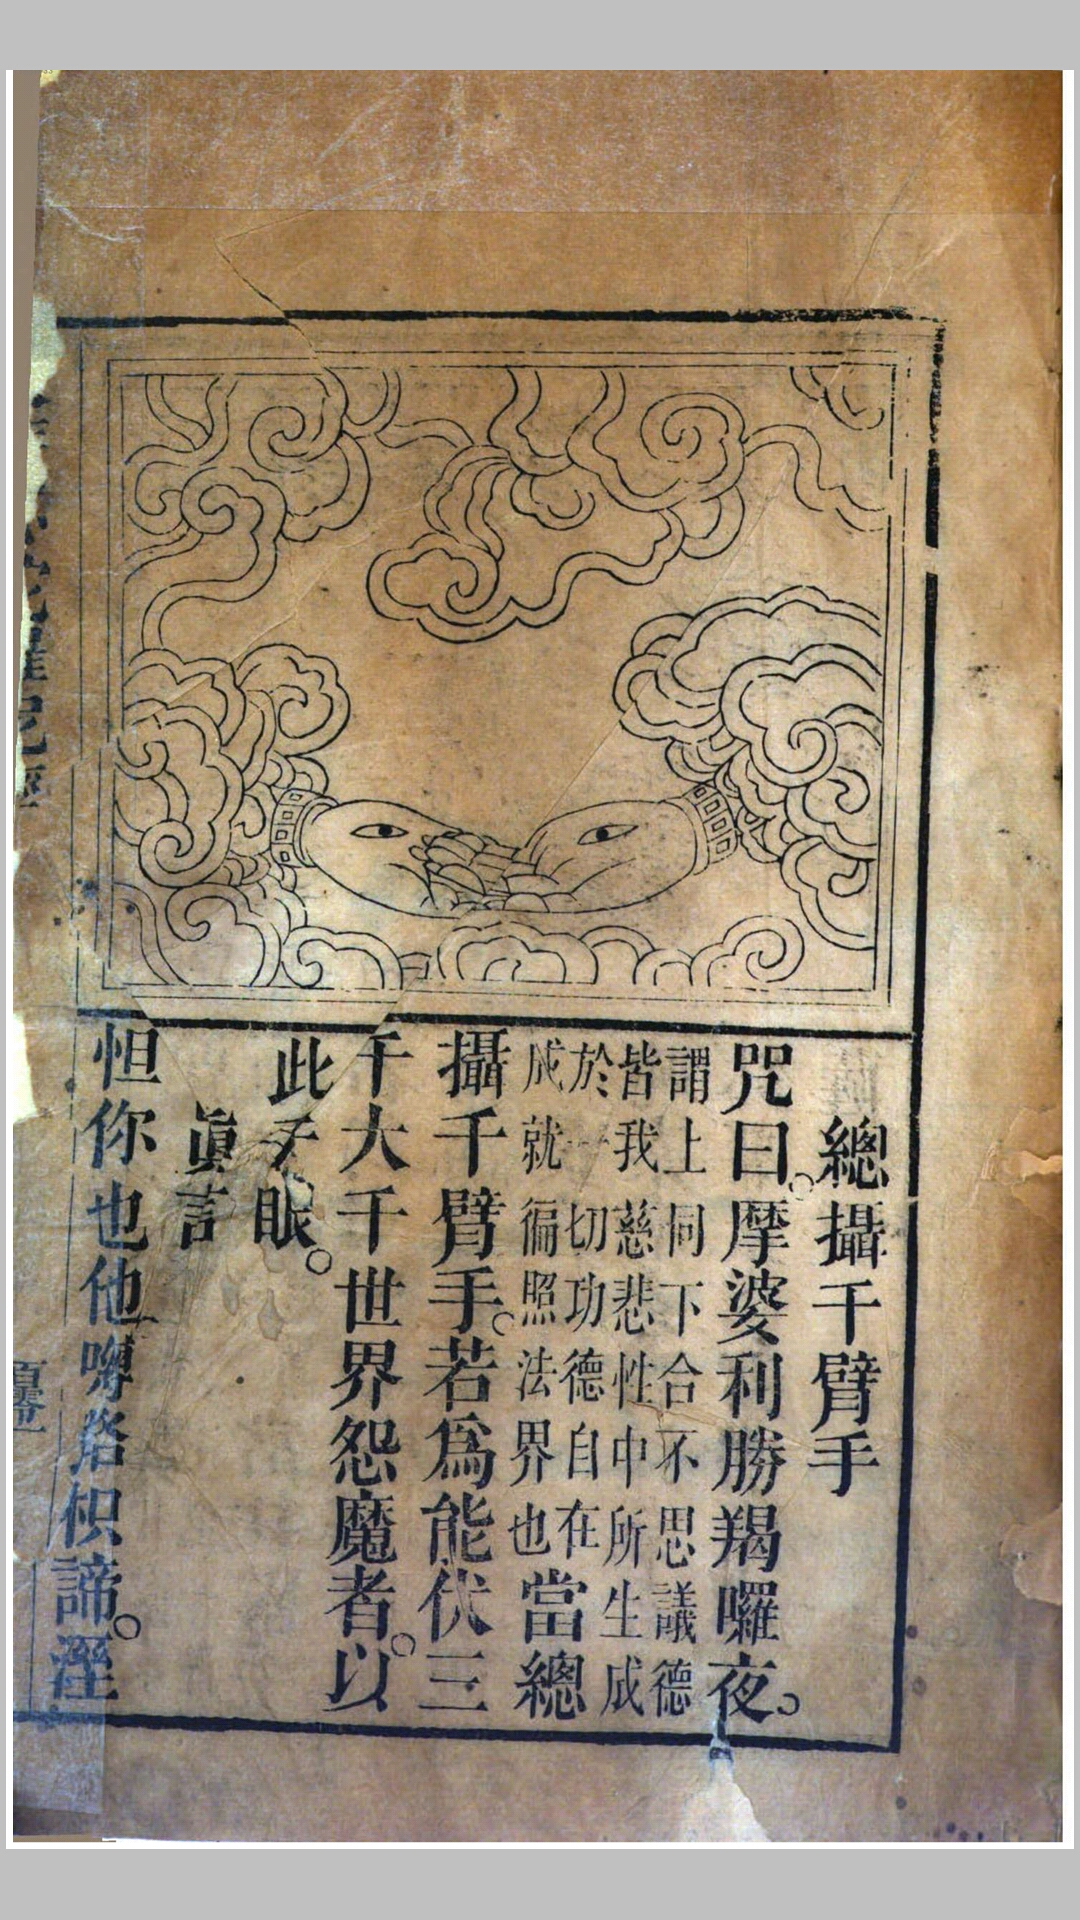 總攝千臂手
咒曰。摩婆利勝羯囉夜。
謂上同下合不思議德
皆我慈悲性中所生成
於一切功德自在
成就徧照法界也
當總
攝千臂手。若爲能伏三
千大千世界怨魔者。以
此手眼。
眞言
怛你也他
枳諦。溼